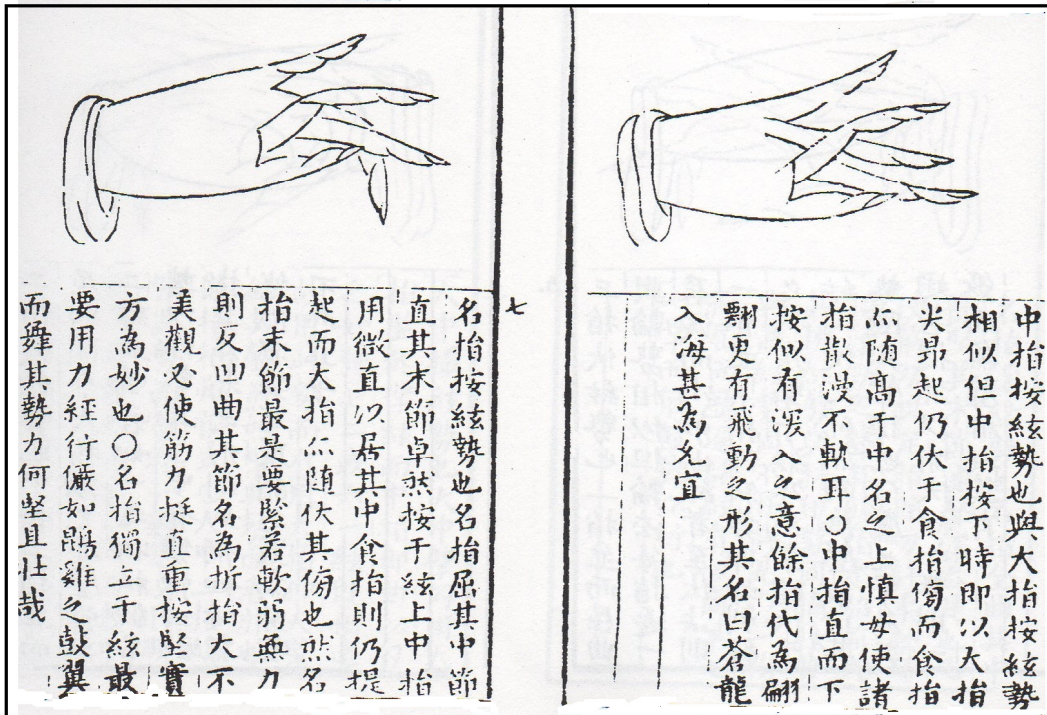 中指按絃勢也與大指按絃勢
相似但中指按下時即以大指
尖昂起仍伏于食指傍而食指
亦随髙于中名之上慎毋使諸
指散漫不軌耳〇中指直而下
按似有深入之意餘指代為翩
翾更有飛動之形其名曰蒼龍
入海甚為允宜
七
名指按絃勢也名指屈其中節
直其末節卓然按于絃上中指
用微直以居其中食指則仍提
起而大指亦随伏其傍也然名
指末節最是要緊若軟弱無力
則反凹曲其節名為折指大不
美觀必使筋力挺直重按堅實
方為妙也〇名指獨立于絃最
要用力經行儼如鶤雞之鼓翼
而舞其勢力何堅且壮哉